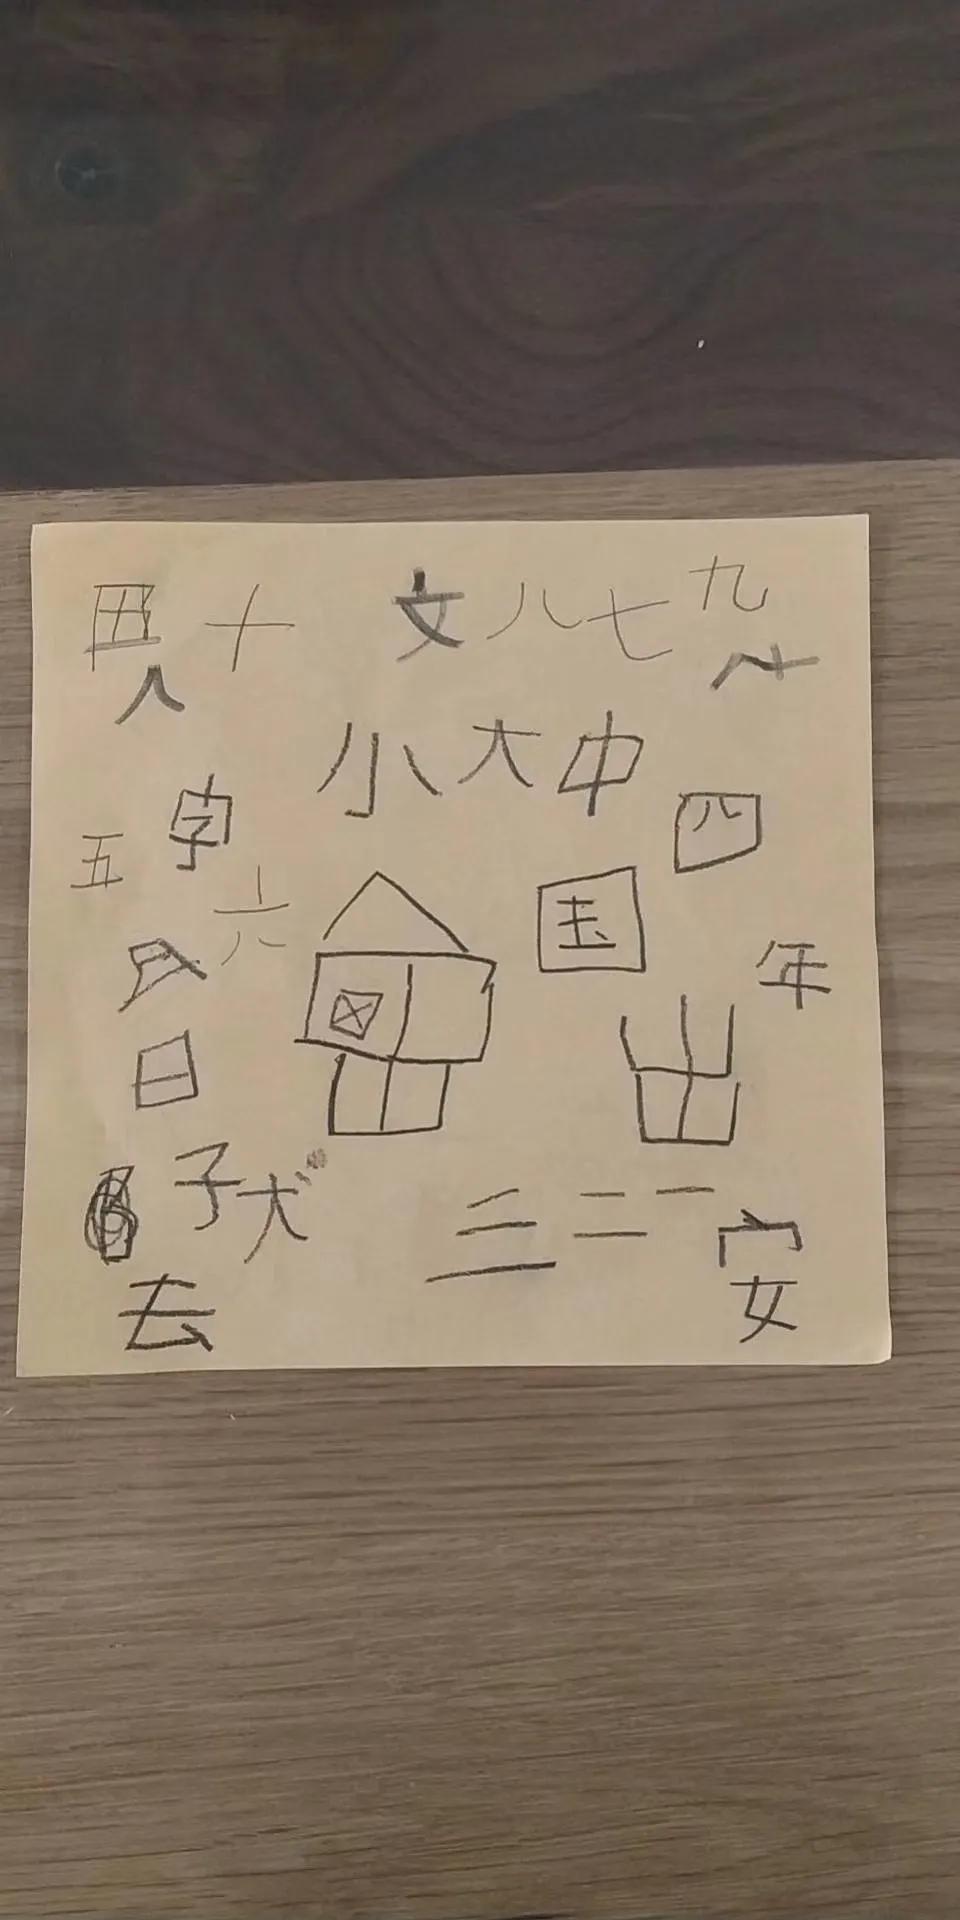 十 文 八 七 九
人
小 大 中
五 字 四
六
国
年
日 出
子 犬 三 二 一
安
去